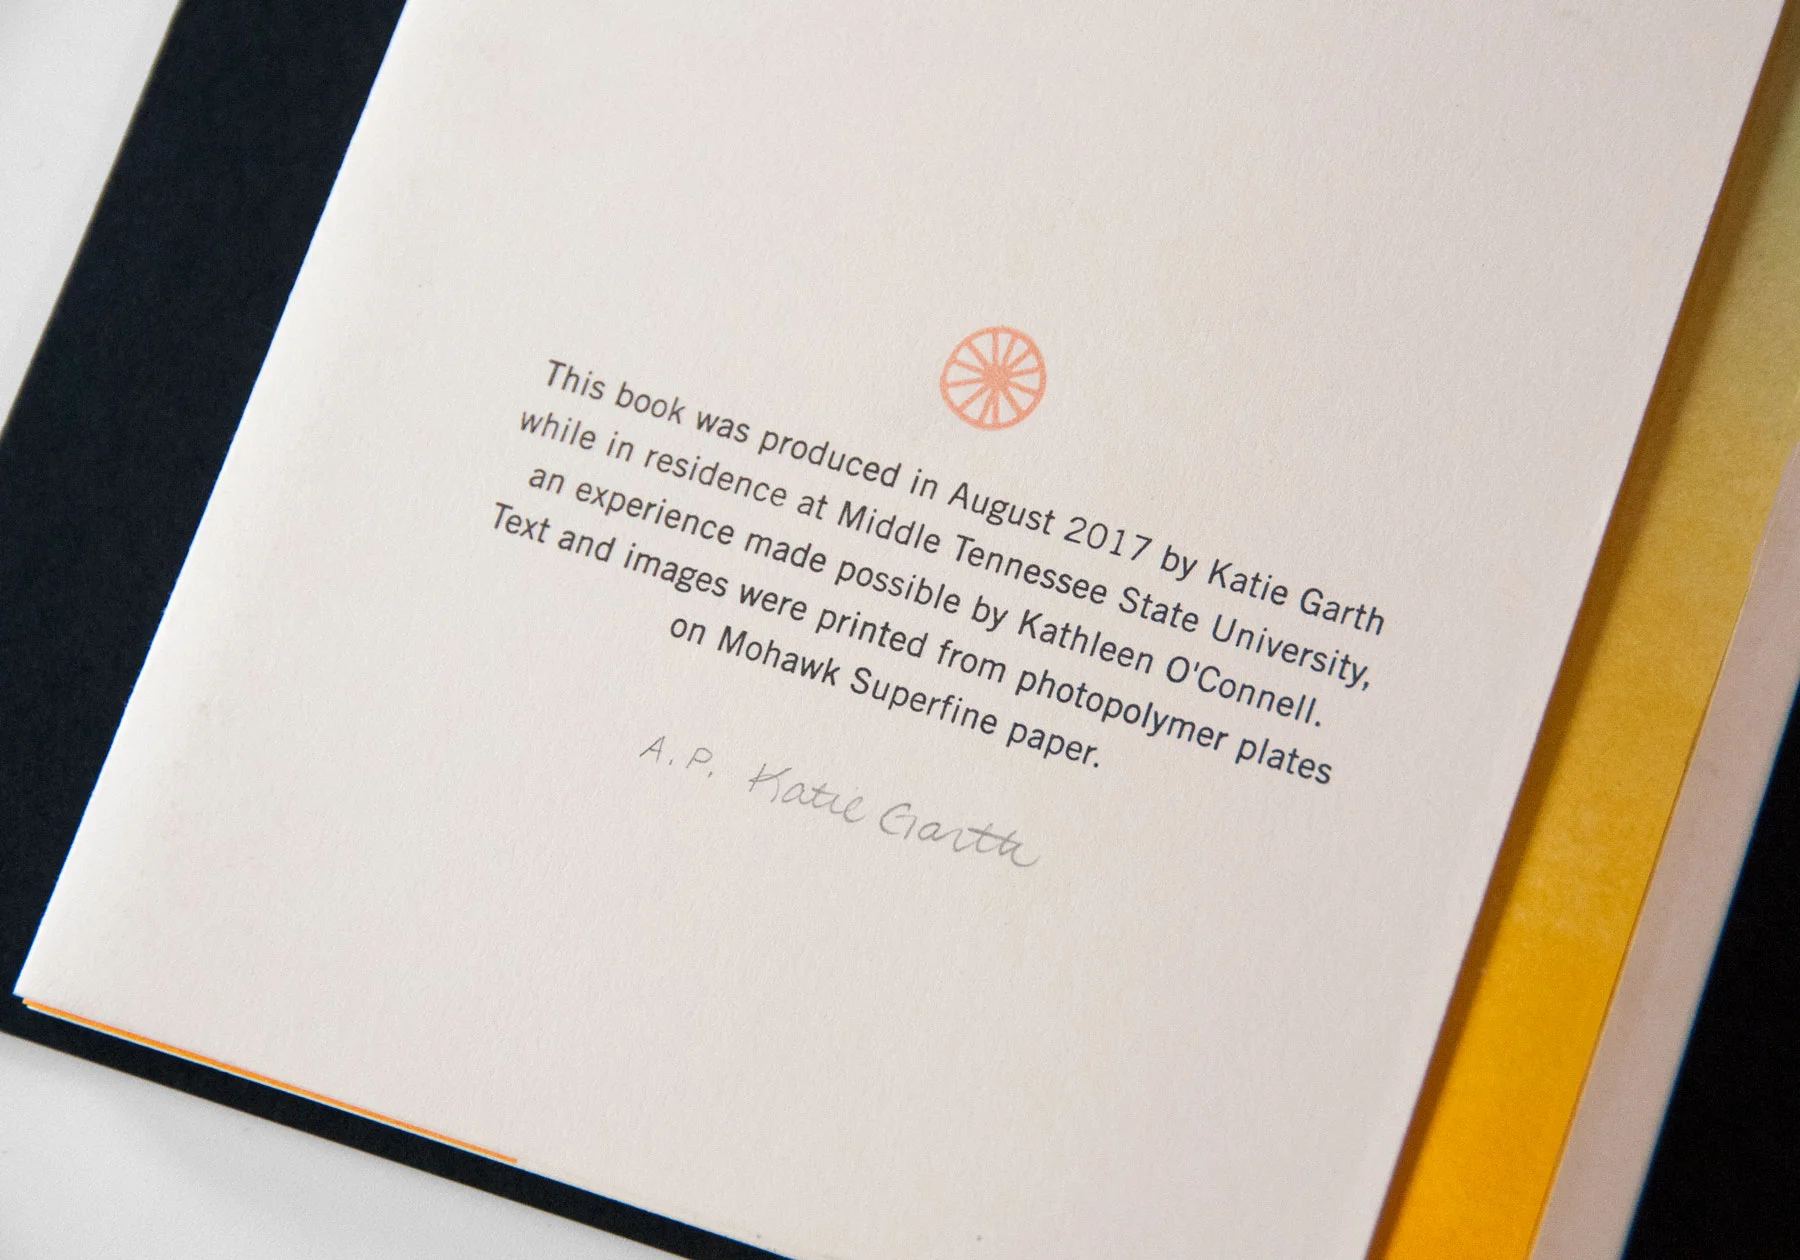 This book was produced in August 2017 by Katie Garth
while in residence at Middle Tennessee State University,
an experience made possible by Kathleen O'Connell.
Text and images were printed from photopolymer plates
on Mohawk Superfine paper.
A.P. Katie Garth